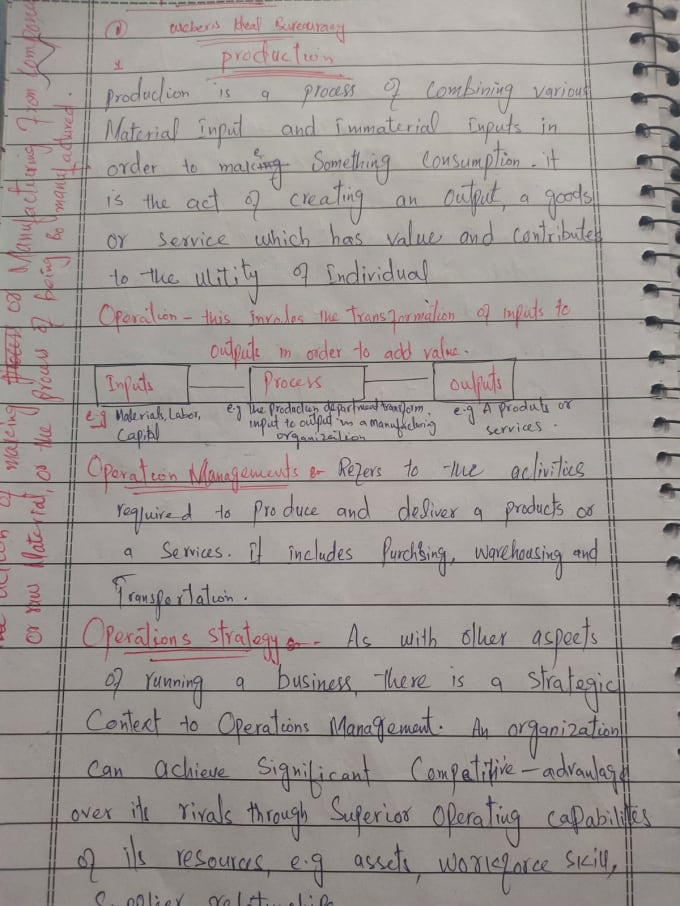 ① webers Ideal Bureucracy
production
Production is a process of combining various
Material Input and immaterial Inputs in
order to make Something Consumption. it
is the act of creating an output, a goods
or service which has value and contributes
to the utitity of Individual
Operation - this Involes the transformation of inputs to
outputs in order to add value.
Inputs Process outputs
e.g Materials, Labor, Capital
e.g The Production department transform input to output in a manufacturing organization
e.g A products or services.
Operation Managements :- Refers to the activities
required to produce and deliver a products or
a Services. it includes Purchsing, warehousing and
Transportation.
Operations Strategy :- As with other aspects
of running a business, there is a strategic
Context to Operations Management. An organization
can achieve Significant Competitive-advantage
over its rivals through Superior Operating capabilities
of its resources, e.g assets, workforce skill,
making or Manufacturing from Compone
or raw Material, or the process of being manufactured.